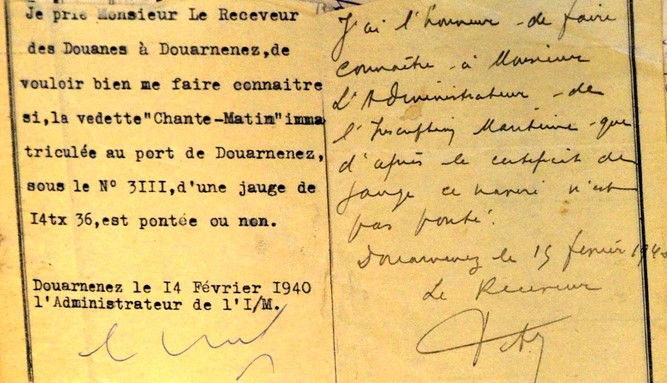 Je prie Monsieur Le Receveur
des Douanes à Douarnenez,de
vouloir bien me faire connaitre
si,la vedette"Chante-Matin"imma
triculée au port de Douarnenez,
sous le N° 3III,d'une jauge de
I4tx 36,est pontée ou non.
Douarnenez le I4 Février I940
l'Administrateur de l'I/M.
J'ai l'honneur de faire
connaître à Monsieur
L'Administrateur de
l'Inscription Maritime que
d'après le certificat de
jauge ce navire n'est
pas ponté.
Douarnenez le 15 février 1940
Le Receveur